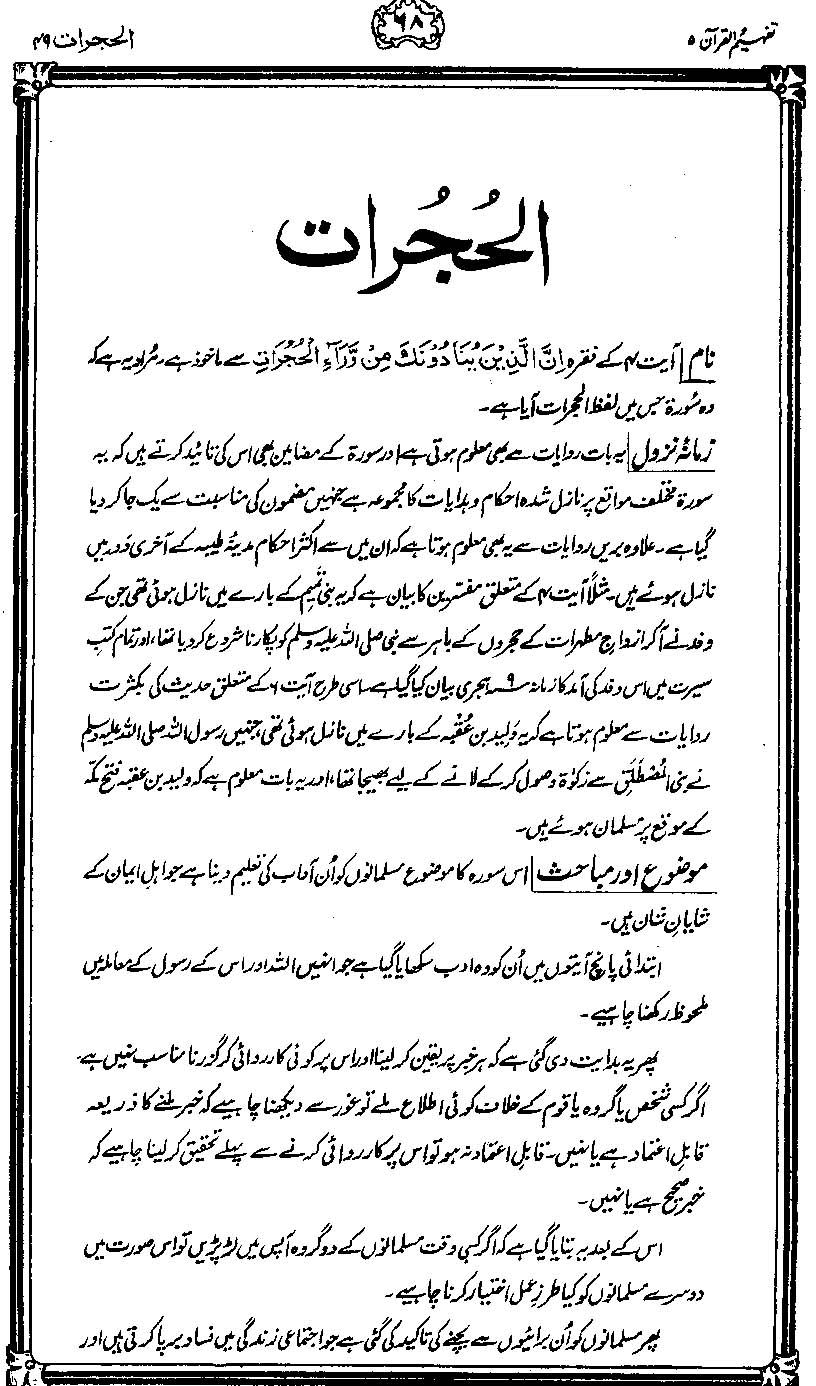 تفہیم القرآن ۵
۶۸
الحجرات ۴۹
الحُجُرات
نام آیت ۴ کے فقرہ اِنَّ الَّذِیْنَ یُنَادُوْنَكَ مِنْ وَّرَآءِ الْحُجُرَاتِ سے ماخوذ ہے۔ مُراد یہ ہے کہ
وہ سُورۃ جس میں لفظ الحجرات آیا ہے۔
زمانۂ نزول یہ بات روایات سے بھی معلوم ہوتی ہے اور سورۃ کے مضامین بھی اس کی تائید کرتے ہیں کہ یہ
سورۃ مختلف مواقع پر نازل شدہ احکام و ہدایات کا مجموعہ ہے جنہیں مضمون کی مناسبت سے یک جا کر دیا
گیا ہے۔ علاوہ بریں روایات سے یہ بھی معلوم ہوتا ہے کہ ان میں سے اکثر احکام مدینۂ طیبہ کے آخری دَور میں
نازل ہوئے ہیں۔ مثلاً آیت ۴ کے متعلق مفسّرین کا بیان ہے کہ یہ بنی تمیم کے بارے میں نازل ہوئی تھی جن کے
وفد نے آکر ازواجِ مطہرات کے حجروں کے باہر سے نبی صلی اللہ علیہ وسلم کو پکارنا شروع کر دیا تھا، اور تمام کتبِ
سیرت میں اس وفد کی آمد کا زمانہ ۹ ہجری بیان کیا گیا ہے۔ اسی طرح آیت ۶ کے متعلق حدیث کی بکثرت
روایات سے معلوم ہوتا ہے کہ یہ وَلید بن عُقبہ کے بارے میں نازل ہوئی تھی جنہیں رسول اللہ صلی اللہ علیہ وسلم
نے بنی المُصْطَلِق سے زکوٰۃ وصول کر کے لانے کے لیے بھیجا تھا، اور یہ بات معلوم ہے کہ ولید بن عقبہ فتح مکہ
کے موقع پر مسلمان ہوئے ہیں۔
موضوع اور مباحث اس سورہ کا موضوع مسلمانوں کو اُن آداب کی تعلیم دینا ہے جو اہل ایمان کے
شایانِ شان ہیں۔
ابتدائی پانچ آیتوں میں اُن کو وہ ادب سکھایا گیا ہے جو انہیں اللہ اور اس کے رسول کے معاملہ میں
ملحوظ رکھنا چاہیے۔
پھر یہ ہدایت دی گئی ہے کہ ہر خبر پر یقین کر لینا اور اس پر کوئی کارروائی کر گزرنا مناسب نہیں ہے۔
اگر کسی شخص یا گروہ یا قوم کے خلاف کوئی اطلاع ملے تو غور سے دیکھنا چاہیے کہ خبر ملنے کا ذریعہ
قابلِ اعتماد ہے یا نہیں۔ قابلِ اعتماد نہ ہو تو اس پر کارروائی کرنے سے پہلے تحقیق کر لینا چاہیے کہ
خبر صحیح ہے یا نہیں۔
اس کے بعد یہ بتایا گیا ہے کہ اگر کسی وقت مسلمانوں کے دو گروہ آپس میں لڑ پڑیں تو اس صورت میں
دوسرے مسلمانوں کو کیا طرزِ عمل اختیار کرنا چاہیے۔
پھر مسلمانوں کو اُن برائیوں سے بچنے کی تاکید کی گئی ہے جو اجتماعی زندگی میں فساد برپا کرتی ہیں اور